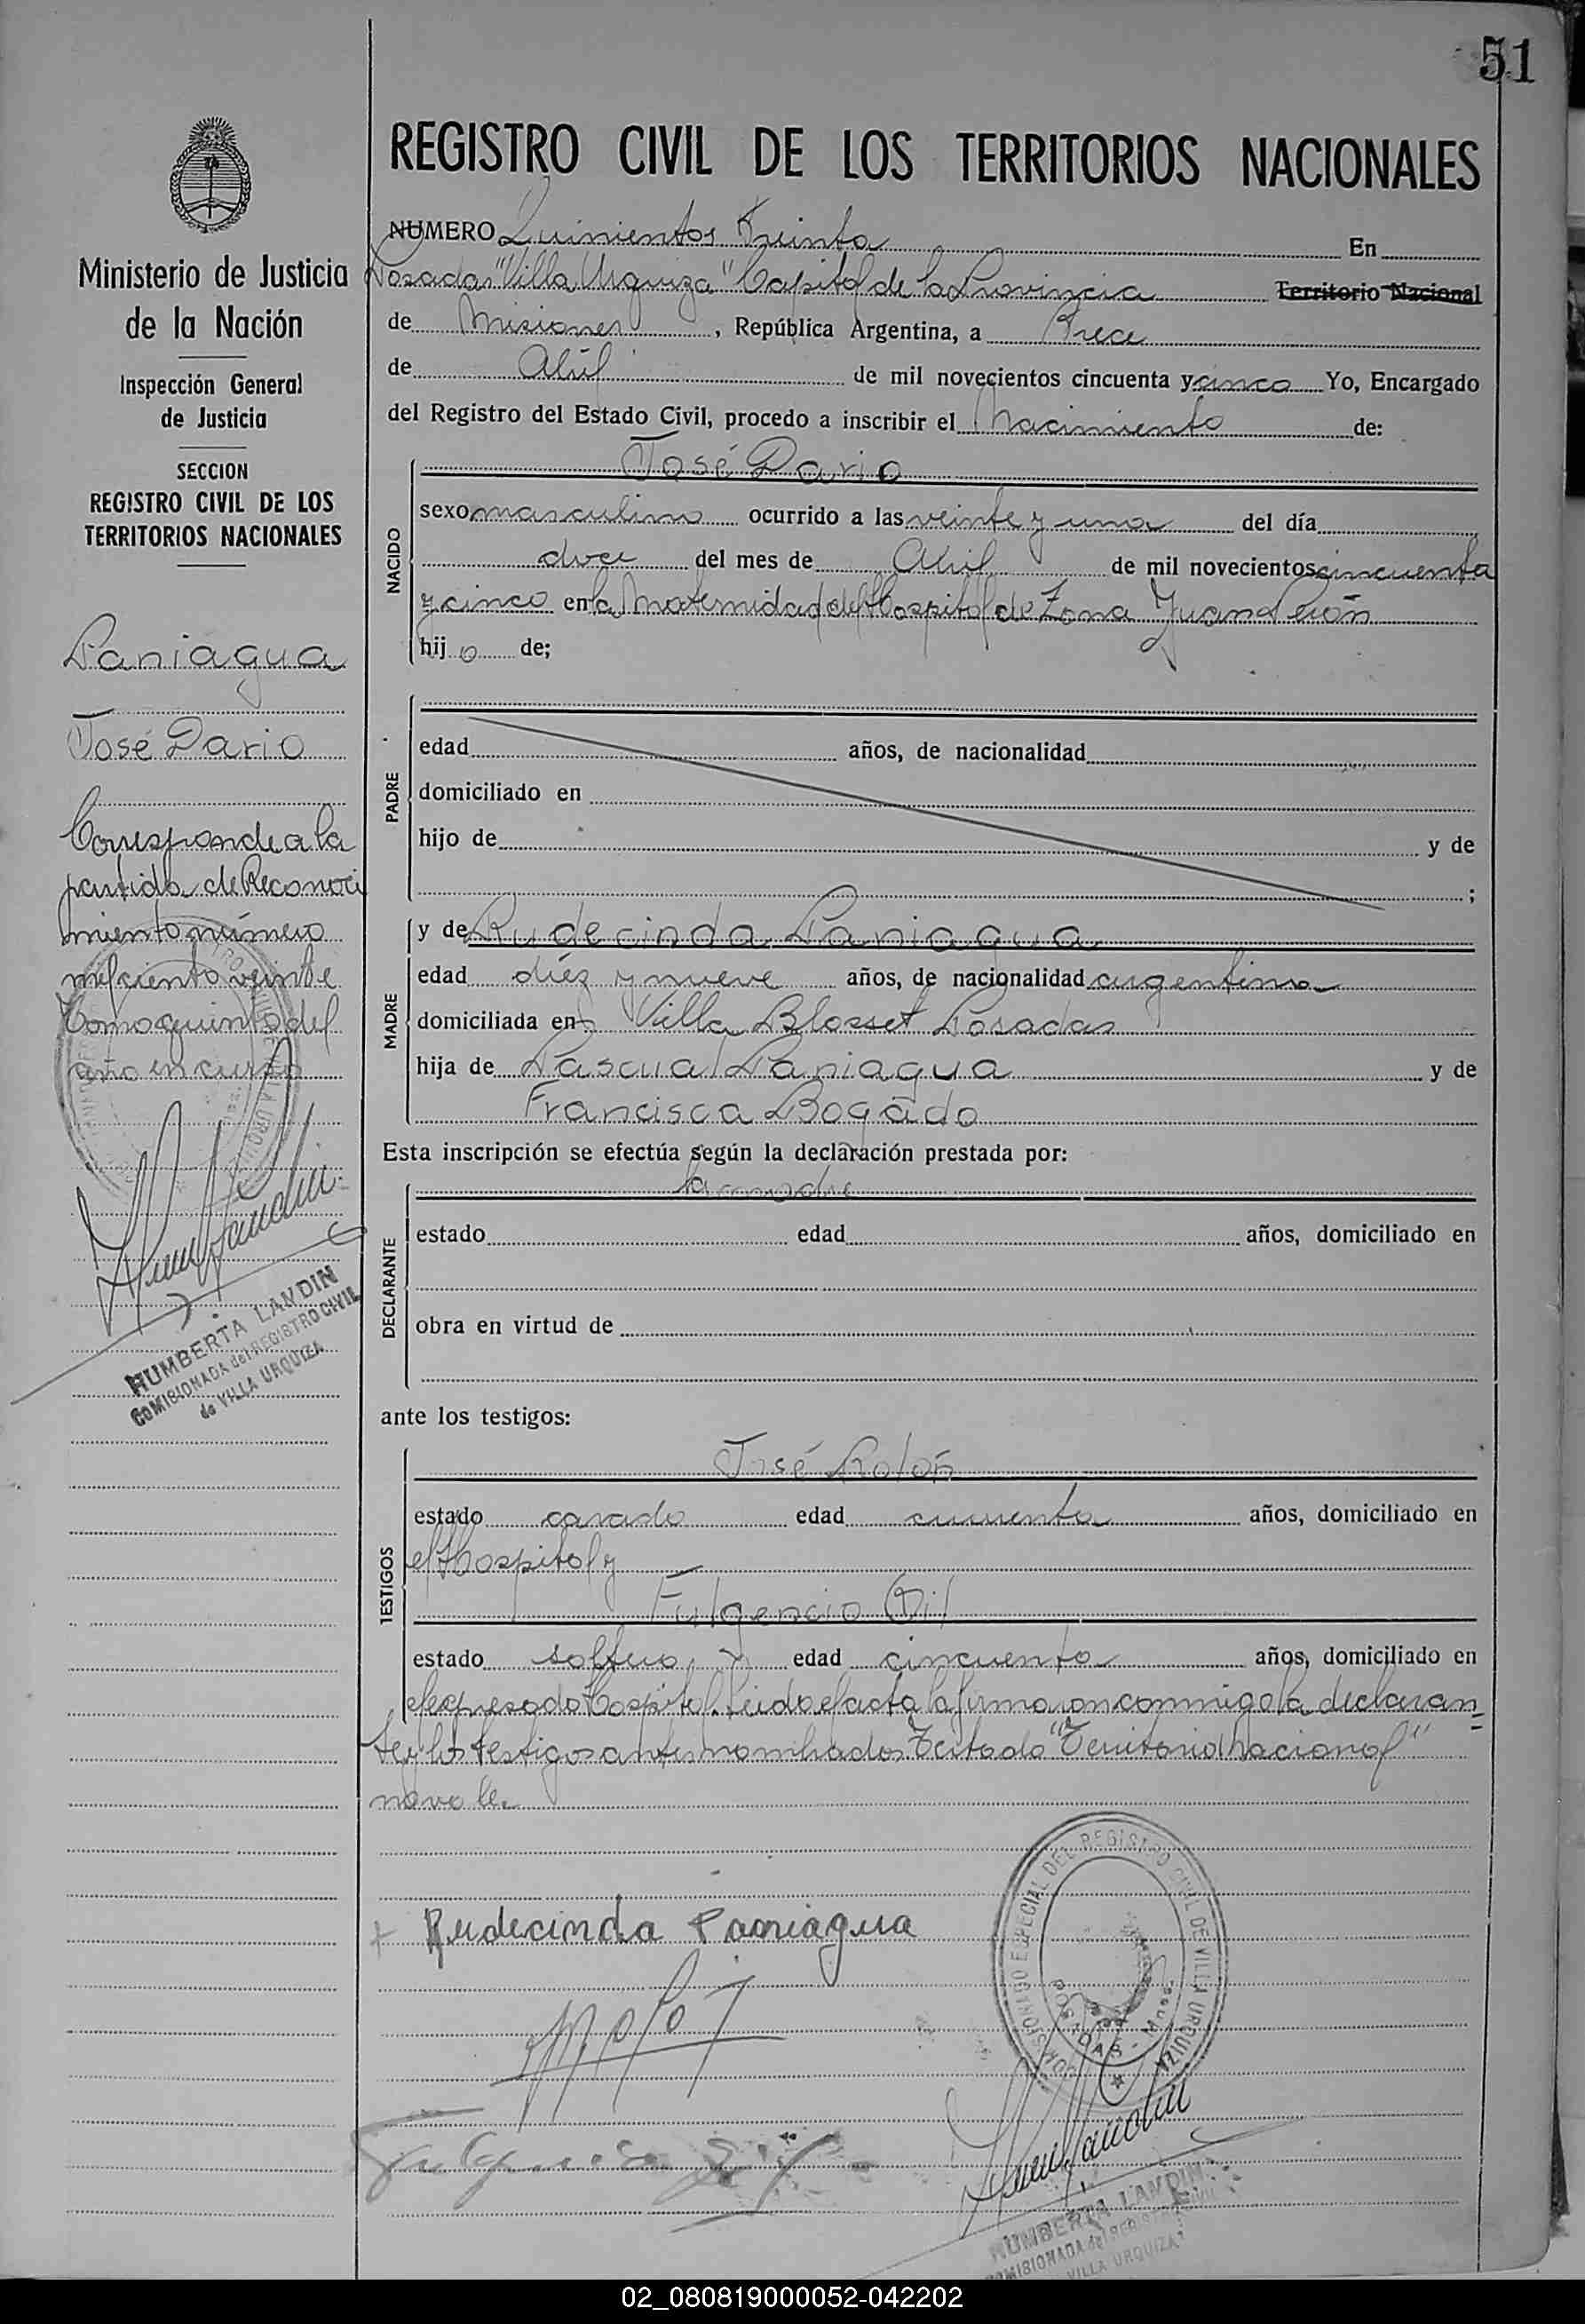 51
REGISTRO CIVIL DE LOS TERRITORIOS NACIONALES
Ministerio de Justicia
de la Nación
Inspección General
de Justicia
SECCION
REGISTRO CIVIL DE LOS
TERRITORIOS NACIONALES
Paniagua
José Dario
Corresponde a la
partida de Reconoci
miento número
mil ciento veinte
Tomo quinto del
año en curso
HUMBERTA LANDIN
COMISIONADA del REGISTRO CIVIL
de VILLA URQUIZA
NUMERO Quinientos Treinta En
Posadas "Villa Urquiza" Capital de la Provincia Territorio Nacional
de Misiones, República Argentina, a Trece
de Abril de mil novecientos cincuenta y cinco Yo, Encargado
del Registro del Estado Civil, procedo a inscribir el Nacimiento de:
NACIDO
José Dario
sexo masculino ocurrido a las veinte y una del día
doce del mes de Abril de mil novecientos cincuenta
y cinco en la Maternidad del Hospital de Zona Juan Perón
hijo de;
PADRE
edad años, de nacionalidad
domiciliado en
hijo de y de
;
MADRE
y de Rudecinda Paniagua
edad diez y nueve años, de nacionalidad argentina
domiciliada en Villa Blosset Posadas
hija de Pascual Paniagua y de
Francisca Bogado
Esta inscripción se efectúa según la declaración prestada por:
DECLARANTE
la madre
estado edad años, domiciliado en
obra en virtud de
ante los testigos:
TESTIGOS
José Rolón
estado casado edad cuarenta años, domiciliado en
el Hospital y
Fulgencio Gil
estado soltero edad cincuenta años, domiciliado en
el expresado Hospital. Leido el acta la firmaron conmigo la declaran
te y los testigos antes nombrados. Testado "Territorio Nacional"
no vale.
Rudecinda Paniagua
COMISIONADO ESPECIAL DEL REGISTRO CIVIL DE VILLA URQUIZA
POSADAS - Mnes.
HUMBERTA LANDIN
COMISIONADA del REGISTRO CIVIL
VILLA URQUIZA
02_080819000052-042202